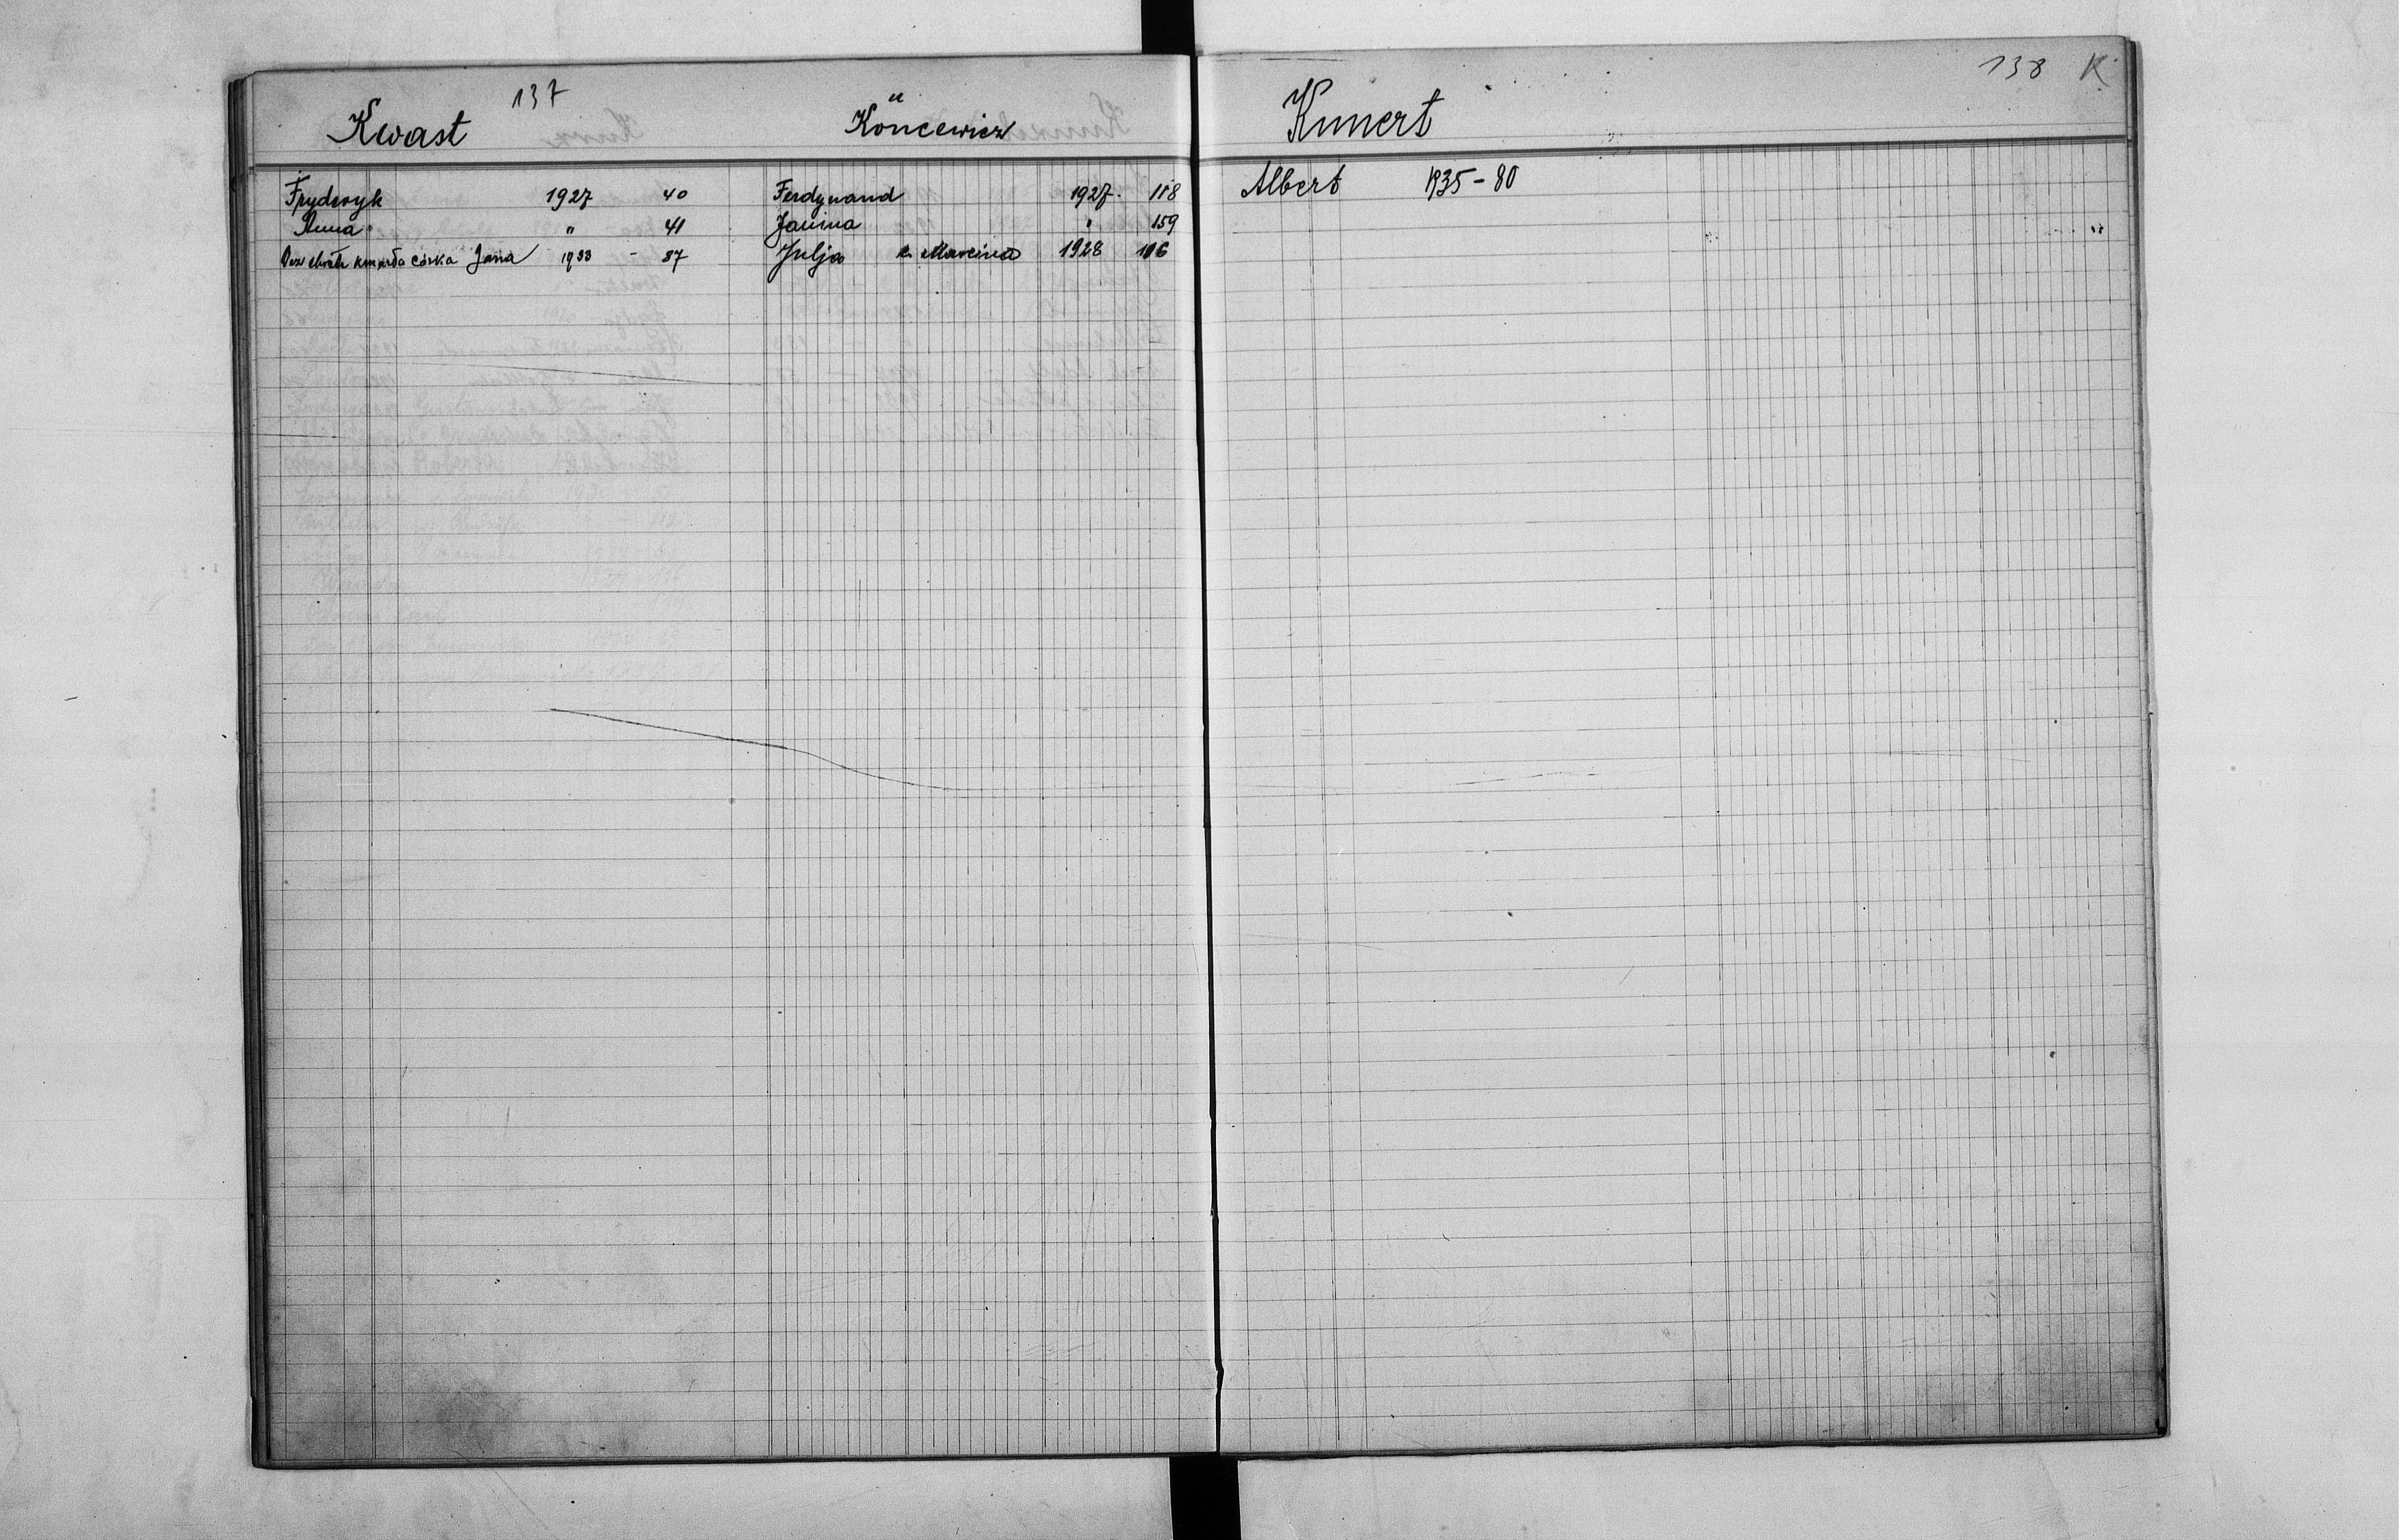 137
Kwast
Fryderyk 1927 40
Anna " 41
Bez chrztu zmarła córka Jana 1933 - 87
Köncewicz
Ferdynand 1927. 118
Janina " 159
Julja z Marcina 1928 106
138 K
Kunert
Albert 1935 - 80